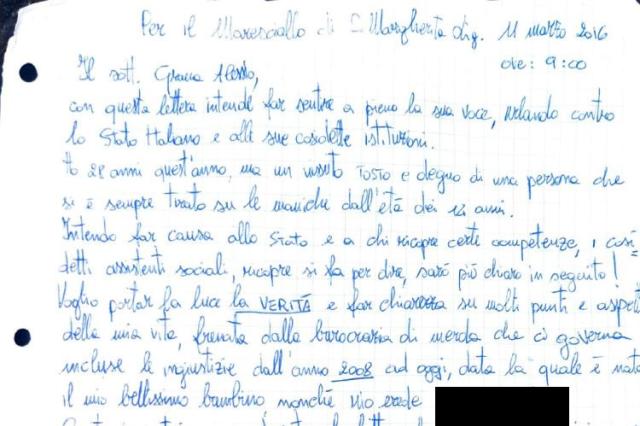 Per il Maresciallo di S. Margherita Lig. 11 marzo 2016
ore: 9:00
Il sott. Alessio,
con questa lettera intende far sentire a pieno la sua voce, urlando contro
lo Stato Italiano e alle sue cosidette istituzioni.
Ho 28 anni quest'anno, ma un vissuto TOSTO e degno di una persona che
si è sempre tirato su le maniche dall'età dei 12 anni.
Intendo far causa allo Stato e a chi ricopre certe competenze, i così
detti assistenti sociali, ricopre si fa per dire, sarò più chiaro in seguito!
Voglio portar fa luce la VERITÀ e far chiarezza su molti punti e aspet
della mia vita, frenata dalla burocrazia di merda che ci governa
incluse le ingiustizie dall'anno 2008 ad oggi, data la quale è nato
il mio bellissimo bambino nonché mio erede